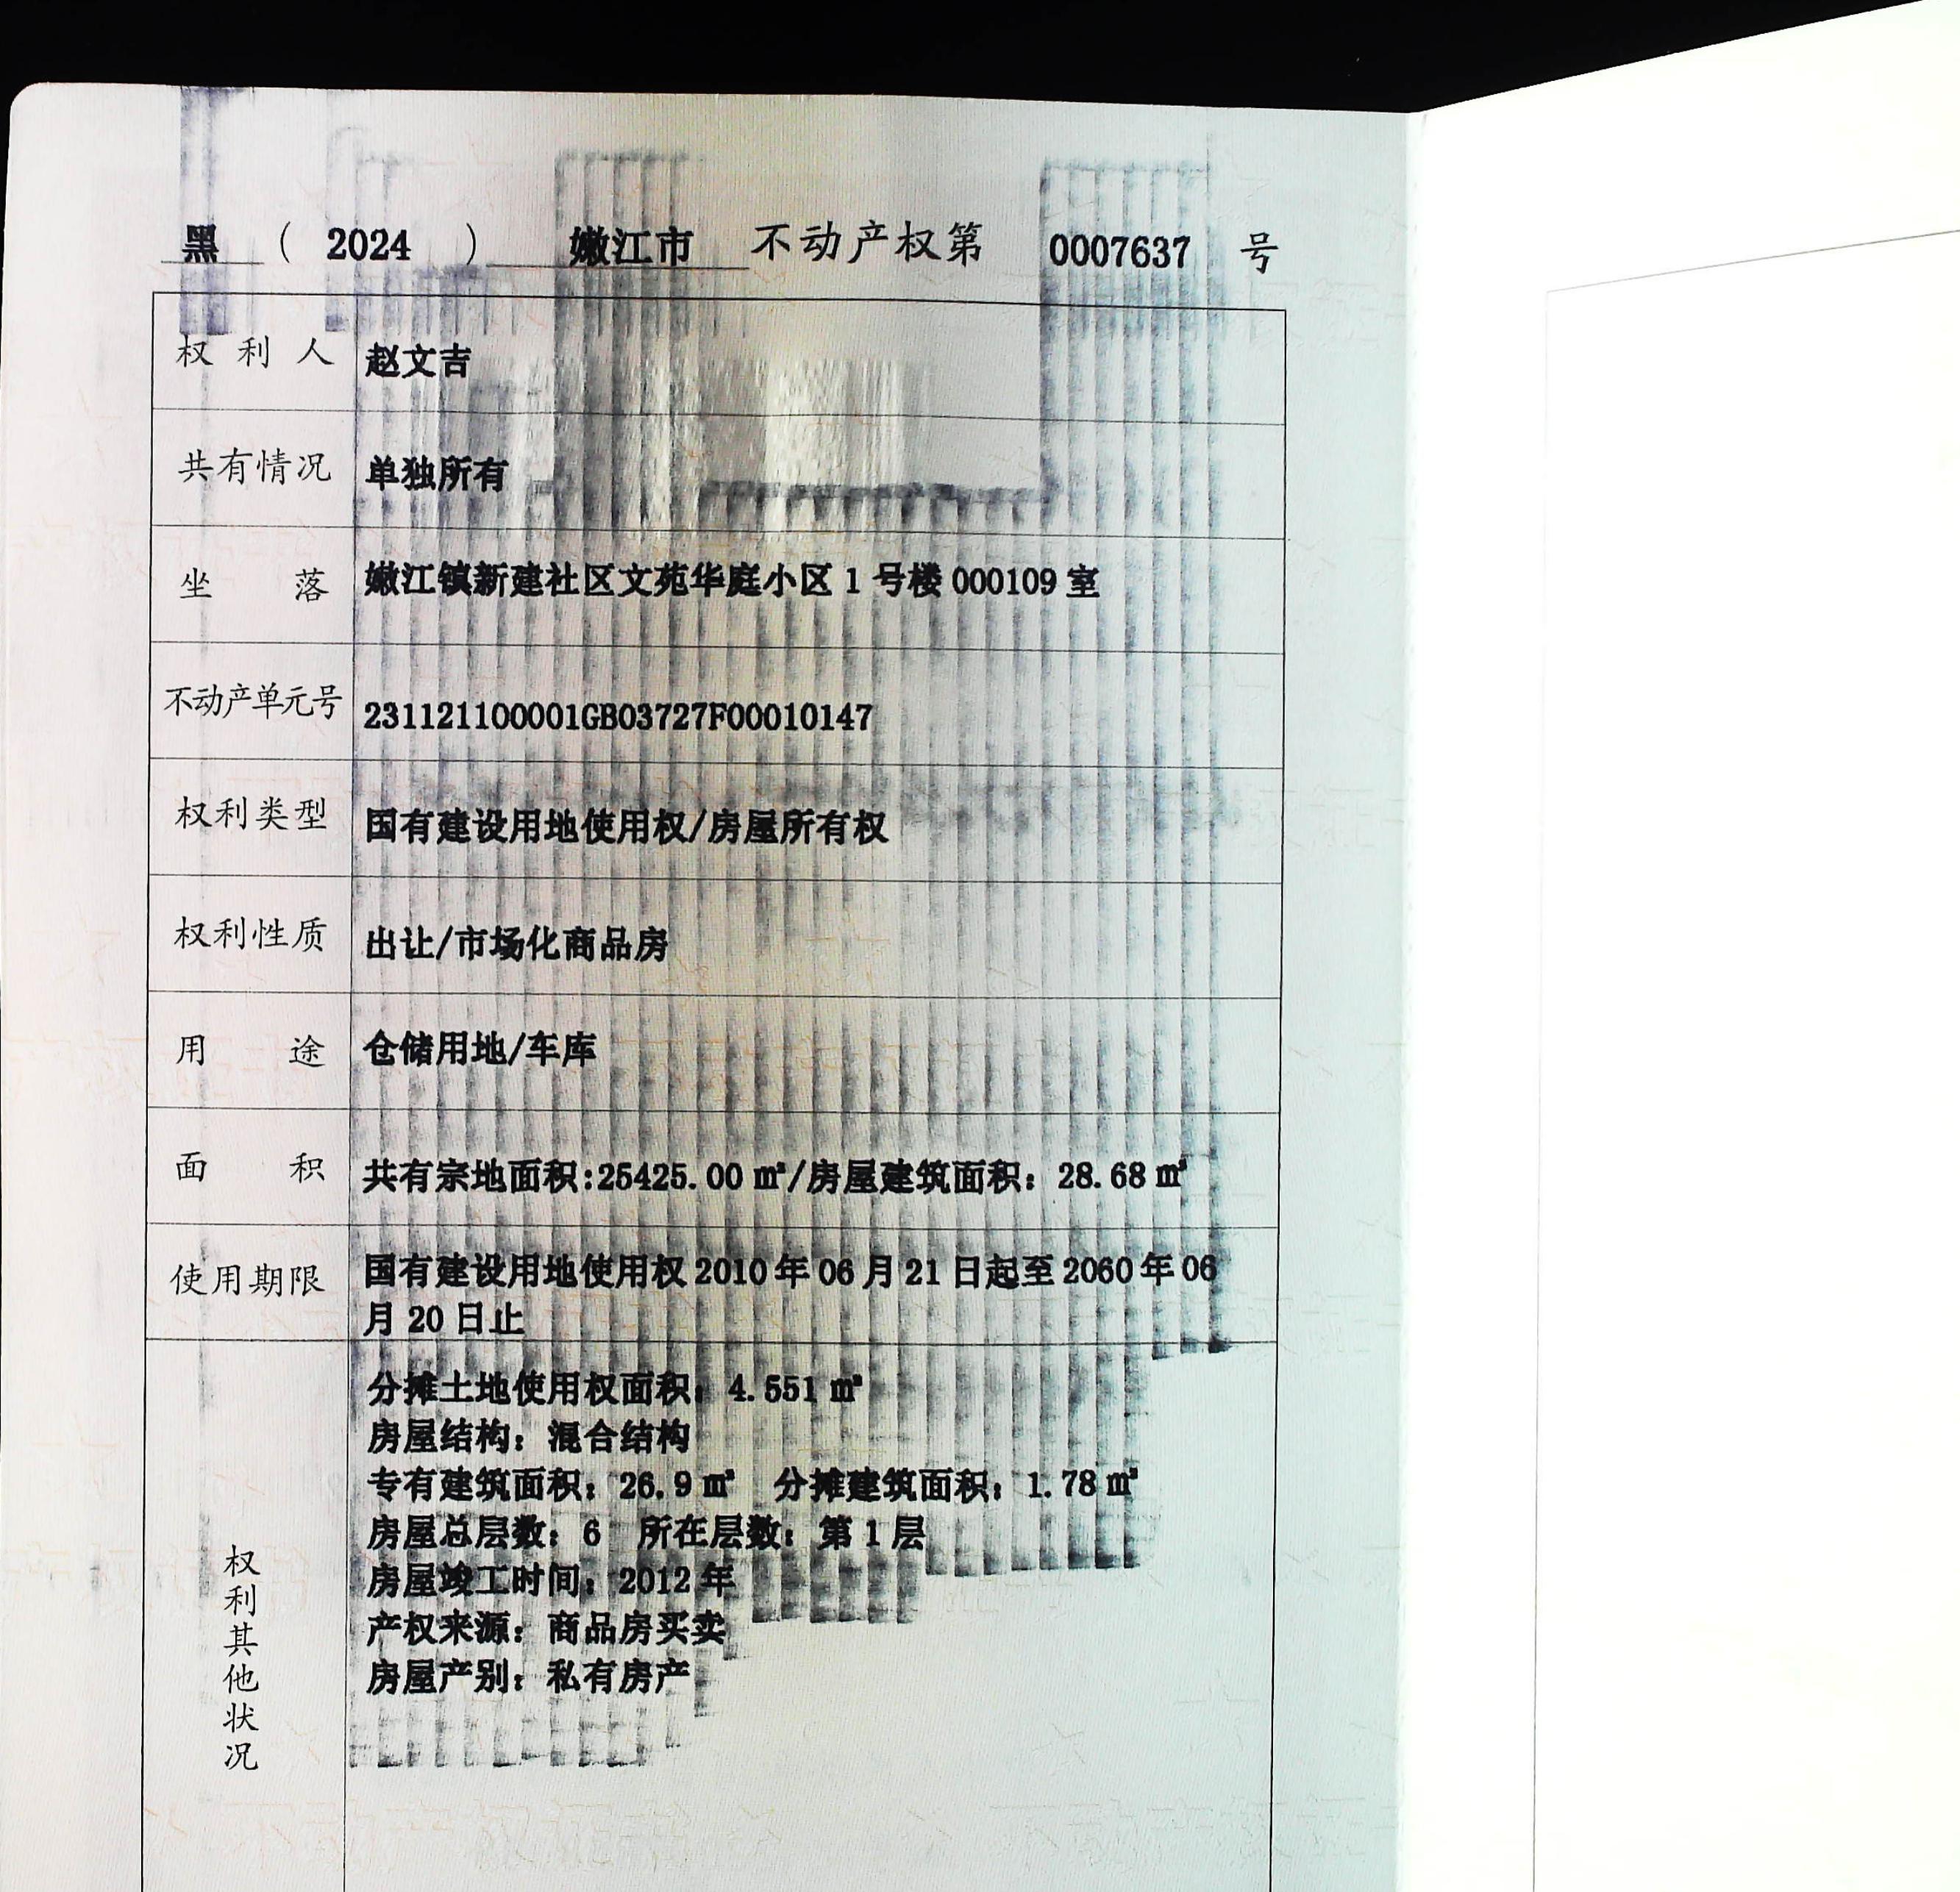 黑 （ 2024 ） 嫩江市 不动产权第 0007637 号
权利人 赵文吉
共有情况 单独所有
坐落 嫩江镇新建社区文苑华庭小区 1 号楼 000109 室
不动产单元号 231121100001GB03727F00010147
权利类型 国有建设用地使用权/房屋所有权
权利性质 出让/市场化商品房
用途 仓储用地/车库
面积 共有宗地面积:25425.00 ㎡/房屋建筑面积：28.68 ㎡
使用期限 国有建设用地使用权 2010 年 06 月 21 日起至 2060 年 06
月 20 日止
权利其他状况
分摊土地使用权面积：4.551 ㎡
房屋结构：混合结构
专有建筑面积：26.9 ㎡ 分摊建筑面积：1.78 ㎡
房屋总层数：6 所在层数：第 1 层
房屋竣工时间：2012 年
产权来源：商品房买卖
房屋产别：私有房产